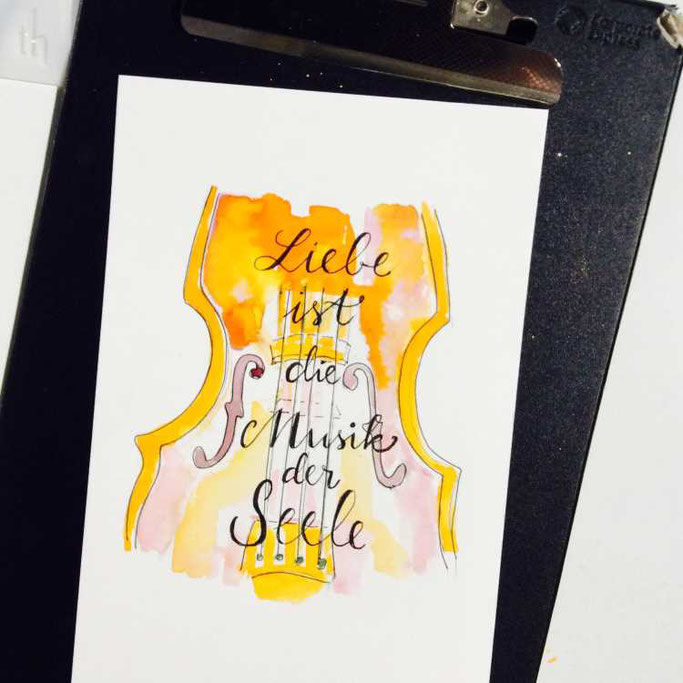 Liebe
ist
die
Musik
der
Seele